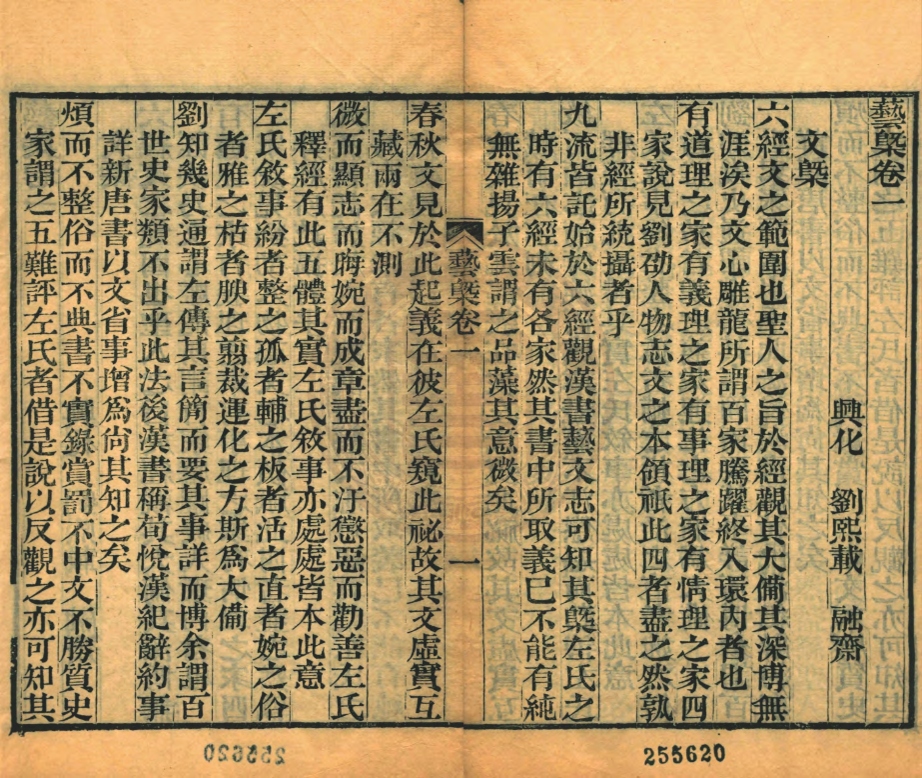 藝槩卷一
興化 劉熙載 融齋
文槩
六經文之範圍也聖人之旨於經觀其大備其深博無
涯涘乃文心雕龍所謂百家騰躍終入環內者也
有道理之家有義理之家有事理之家有情理之家四
家說見劉劭人物志文之本領祇此四者盡之然孰
非經所統攝者乎
九流皆託始於六經觀漢書藝文志可知其槩左氏之
時有六經未有各家然其書中所取義已不能有純
無雜揚子雲謂之品藻其意微矣
藝槩卷一
一
春秋文見於此起義在彼左氏窺此祕故其文虛實互
藏兩在不測
微而顯志而晦婉而成章盡而不汙懲惡而勸善左氏
釋經有此五體其實左氏敘事亦處處皆本此意
左氏敘事紛者整之孤者輔之板者活之直者婉之俗
者雅之枯者腴之翦裁運化之方斯爲大備
劉知幾史通謂左傳其言簡而要其事詳而博余謂百
世史家類不出乎此法後漢書稱荀悅漢紀辭約事
詳新唐書以文省事增爲尙其知之矣
煩而不整俗而不典書不實錄賞罰不中文不勝質史
家謂之五難評左氏者借是說以反觀之亦可知其
255620
255620